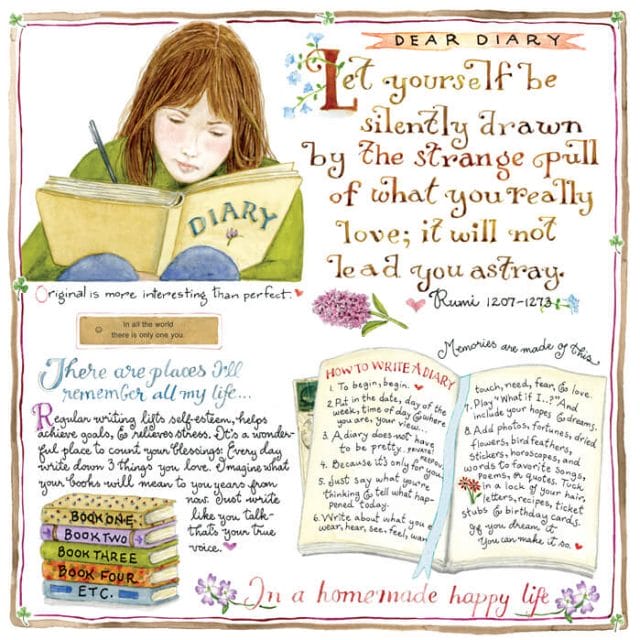 DEAR DIARY
Let yourself be
silently drawn
by the strange pull
of what you really
love; it will not
lead you astray.
Rumi 1207-1273
DIARY
Original is more interesting than perfect.
In all the world
there is only one you.
There are places I'll
remember all my life...
Regular writing lifts self-esteem, helps
achieve goals, & relieves stress. It's a wonder-
ful place to count your blessings: Every day
write down 3 things you love. Imagine what
your books will mean to you years from
now. Just write
like you talk-
that's your true
voice.
BOOK ONE
BOOK TWO
BOOK THREE
BOOK FOUR
ETC.
Memories are made of this
HOW TO WRITE A DIARY
1. To begin, begin.
2. Put in the date, day of the
week, time of day & where
you are, your view...
3. A diary does not have
to be pretty.
4. Because it's only for you.
5. Just say what you're
thinking & tell what hap-
pened today.
6. Write about what you
wear, hear, see, feel, want
touch, need, fear, & love.
7. Play "What if I..?" And
include your hopes & dreams.
8. Add photos, fortunes, dried
flowers, bird feathers,
stickers, horoscopes, and
words to favorite songs,
poems, or quotes. Tuck
in a lock of your hair,
letters, recipes, ticket
stubs & birthday cards.
If you dream it
you can make it so.
In a homemade happy life